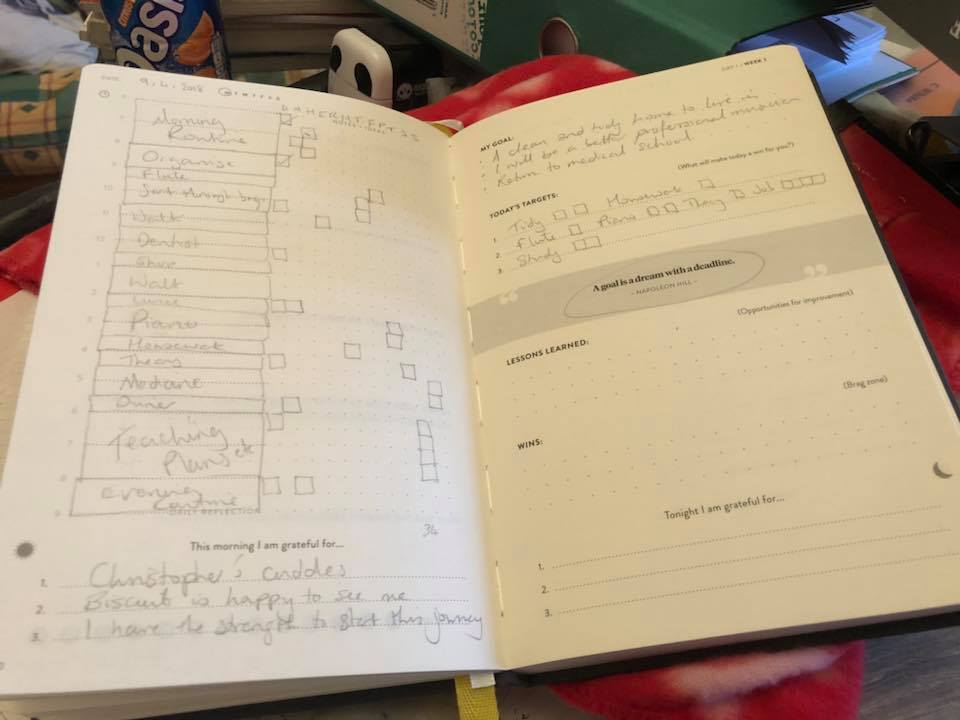 DATE: 9.4.2018
Morning
Routine
Organise
Flute
Walk
Dentist
Walk
Piano
Homework
Theory
Dinner
Teaching
Plans etc
Evening
Routine
DAILY REFLECTION
34
This morning I am grateful for...
1. Christopher's cuddles
2. Biscuit is happy to see me
3. I have the strength to start this journey
DAY 1 / WEEK 1
MY GOAL:
· A clean and tidy home to live in
· I will be a better professional musician
· Return to medical school
(What will make today a win for you?)
TODAY'S TARGETS:
1. Tidy Homework
2. Flute Piano Theory Job
3. Study
A goal is a dream with a deadline.
- NAPOLEON HILL -
(Opportunities for improvement)
LESSONS LEARNED:
(Brag zone)
WINS:
Tonight I am grateful for...
1.
2.
3.